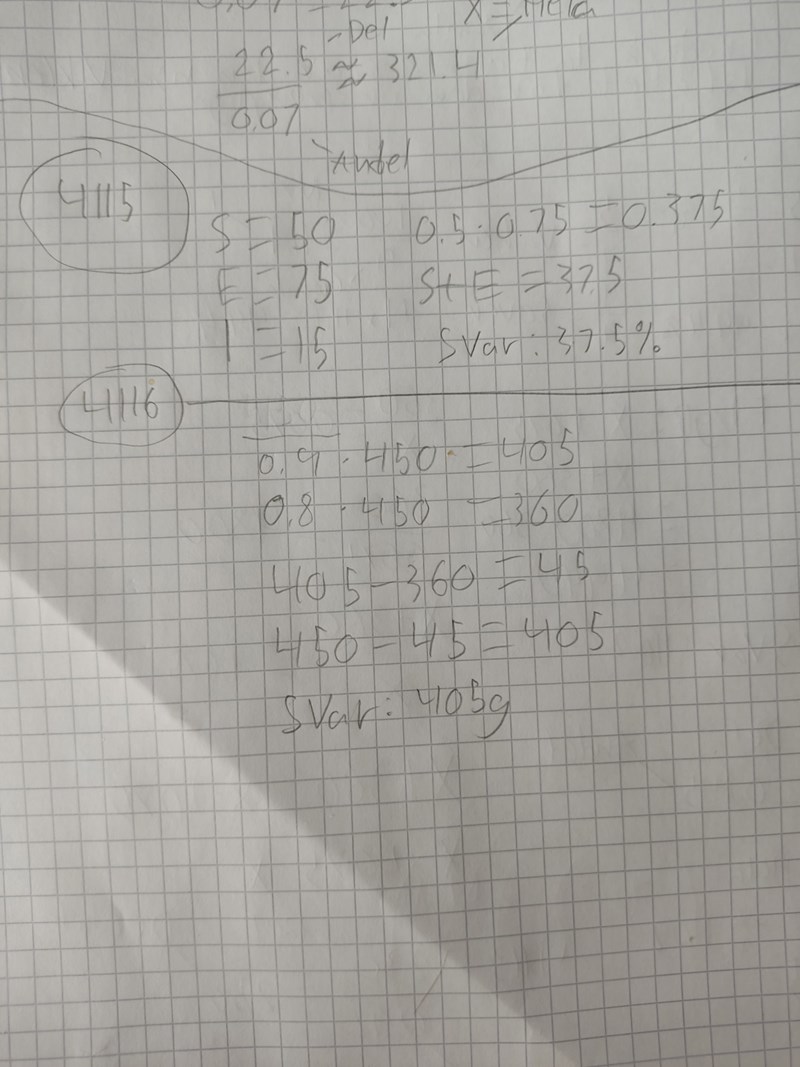 -Del
22.5 ≈ 321.4
0.07
Andel
4115
S = 50 0.5 · 0.75 = 0.375
E = 75 S+E = 37.5
I = 15 Svar: 37.5%
4116
0.9 · 450 = 405
0.8 · 450 = 360
405 - 360 = 45
450 - 45 = 405
Svar: 405g